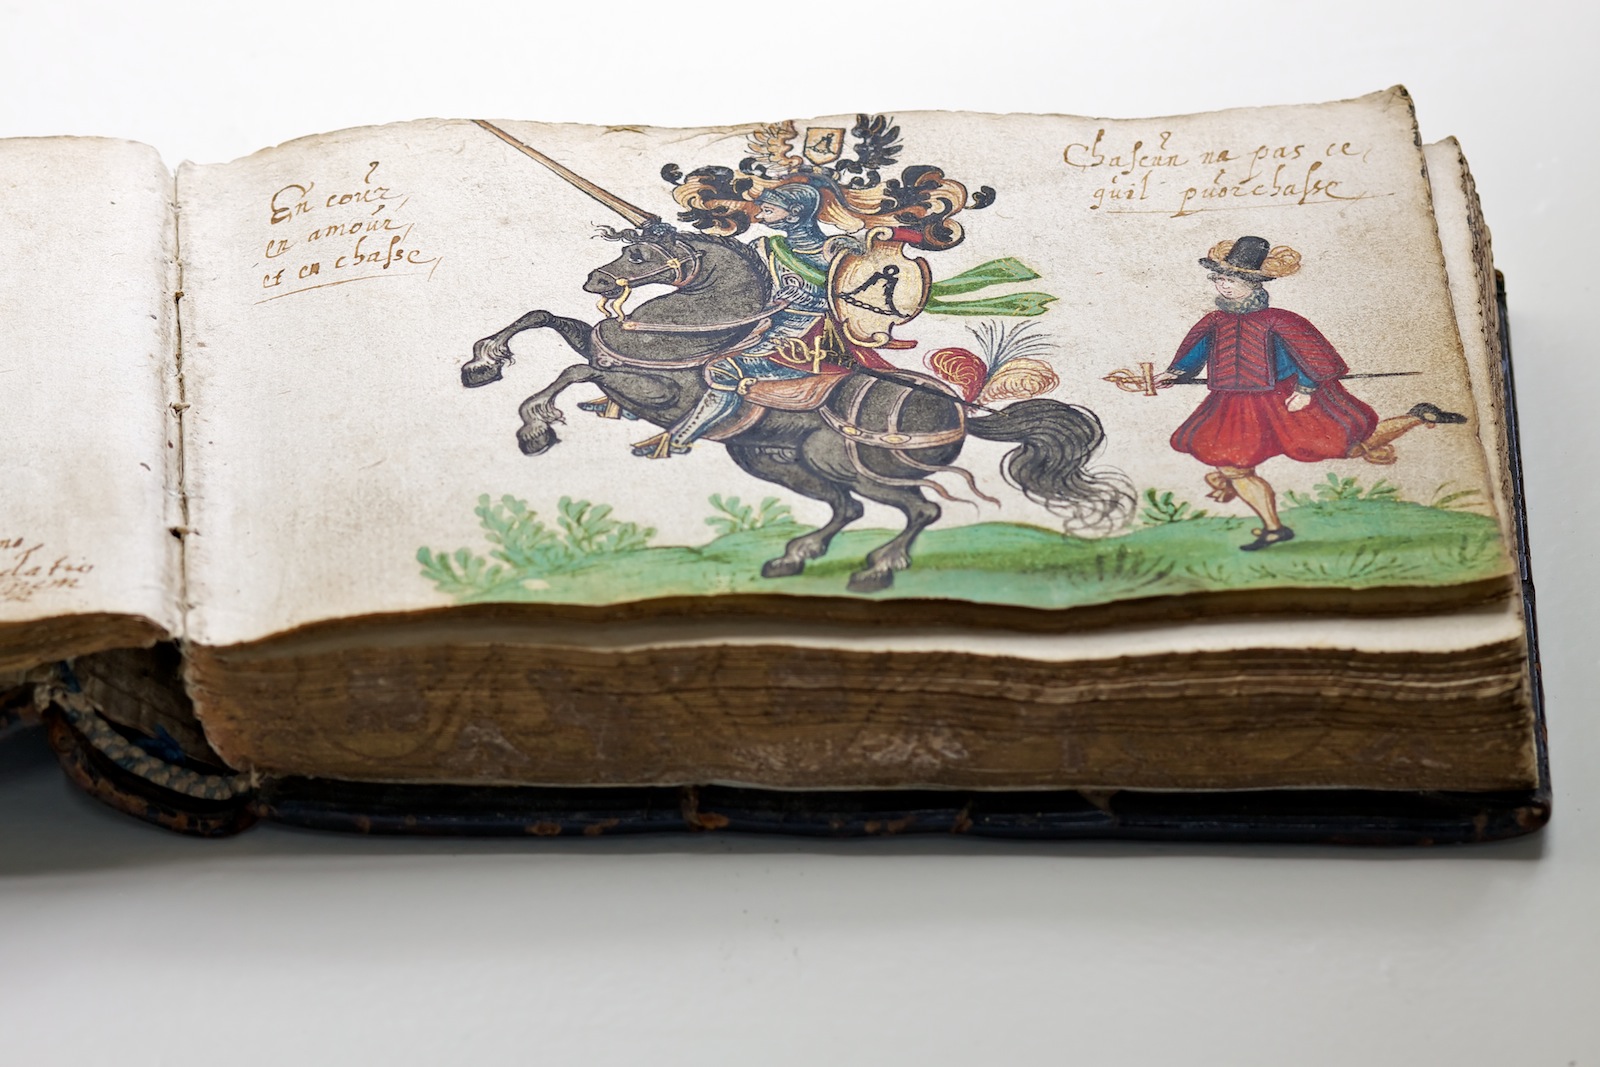 En cour,
en amour,
et en chasse,
Chascun na pas ce,
quil pourchasse